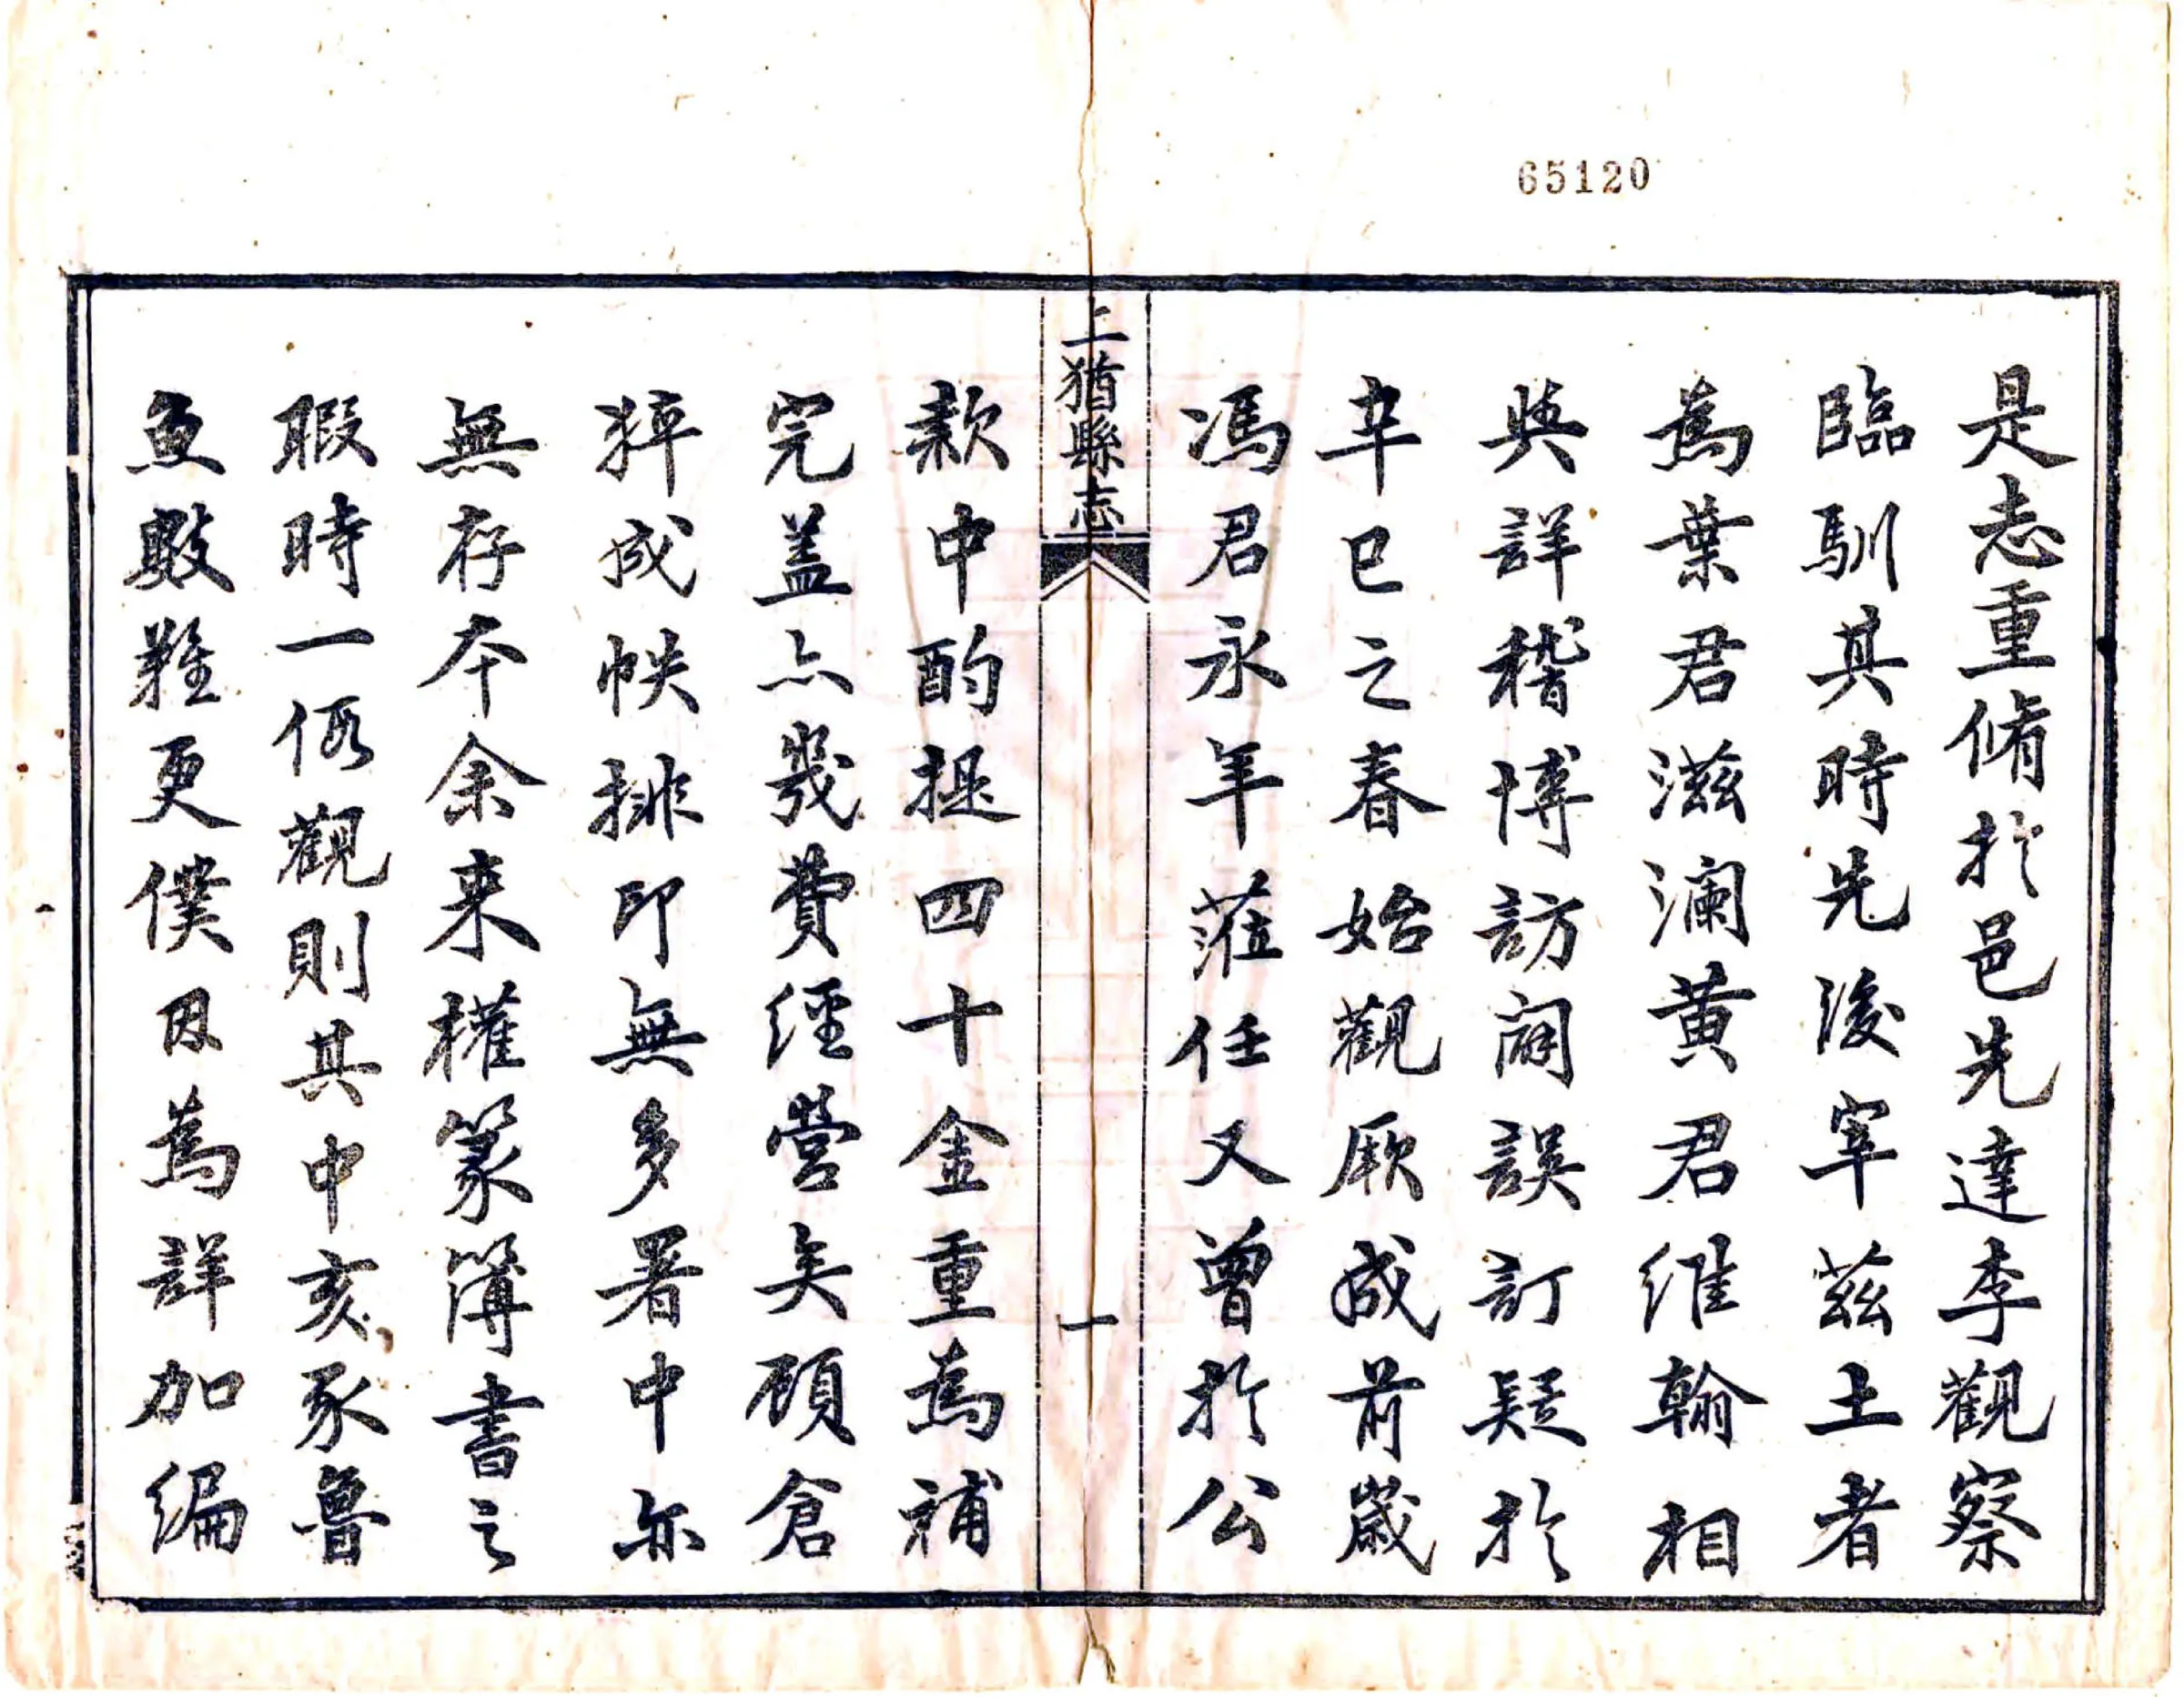 65120
是志重脩於邑先達李觀察
臨馴其時先後宰茲土者
為葉君滋瀾黃君維翰相
與詳稽博訪闢誤訂疑於
辛巳之春始觀厥成前歲
馮君永年蒞任又曾於公
上猶縣志
一
款中酌提四十金重為補
完蓋亦幾費經營矣顧倉
猝成帙排印無多署中亦
無存本余来權篆簿書之
暇時一偶觀則其中亥豕魯
魚數難更僕因為詳加編